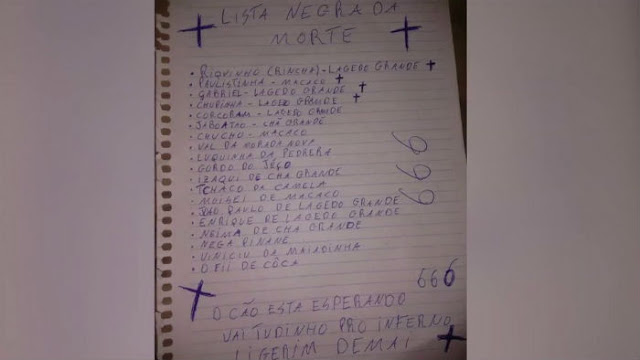 LISTA NEGRA DA
MORTE
• RIQUINHO (RINCHA) - LAGEDO GRANDE
• PAULISTINHA - MACACO
• GABRIEL - LAGEDO GRANDE
• LAGEDO GRANDE
• CORCORAM - LAGEDO GRANDE
• JABOATÃO - CHÃ GRANDE
• CHUCHO - MACACO
• VAL DA MORADA NOVA
• LUQUINHA DA PEDREIRA
• GORDO DO
• IZAQUI DE CHA GRANDE
• TCHACO DA CAMELA
• MOISEI DE MACACO
• JOÃO PAULO DE LAGEDO GRANDE
• ENRIQUE DE LAGEDO GRANDE
• NEIMA DE CHA GRANDE
• NEGA PINANE
• VINICIU DA MAIADINHA
• O FII DE CÔCA
666
666
O CÃO ESTA ESPERANDO
VAI TUDINHO PRO INFERNO
LIGERIM DEMAI